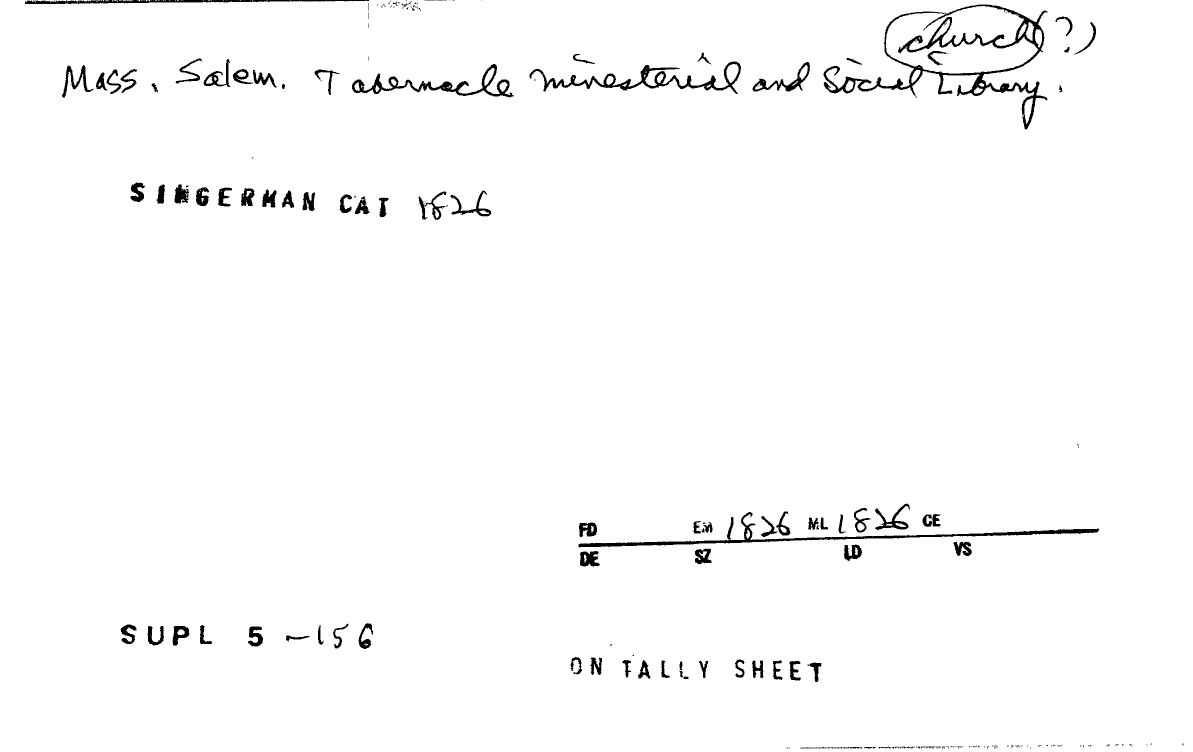 church(?)
Mass. Salem. Tabernacle ministerial and Social Library.
SINGERMAN CAT 1826
FD EM 1826 ML 1826 CE
DE SZ LD VS
SUPL 5 -156
ON TALLY SHEET